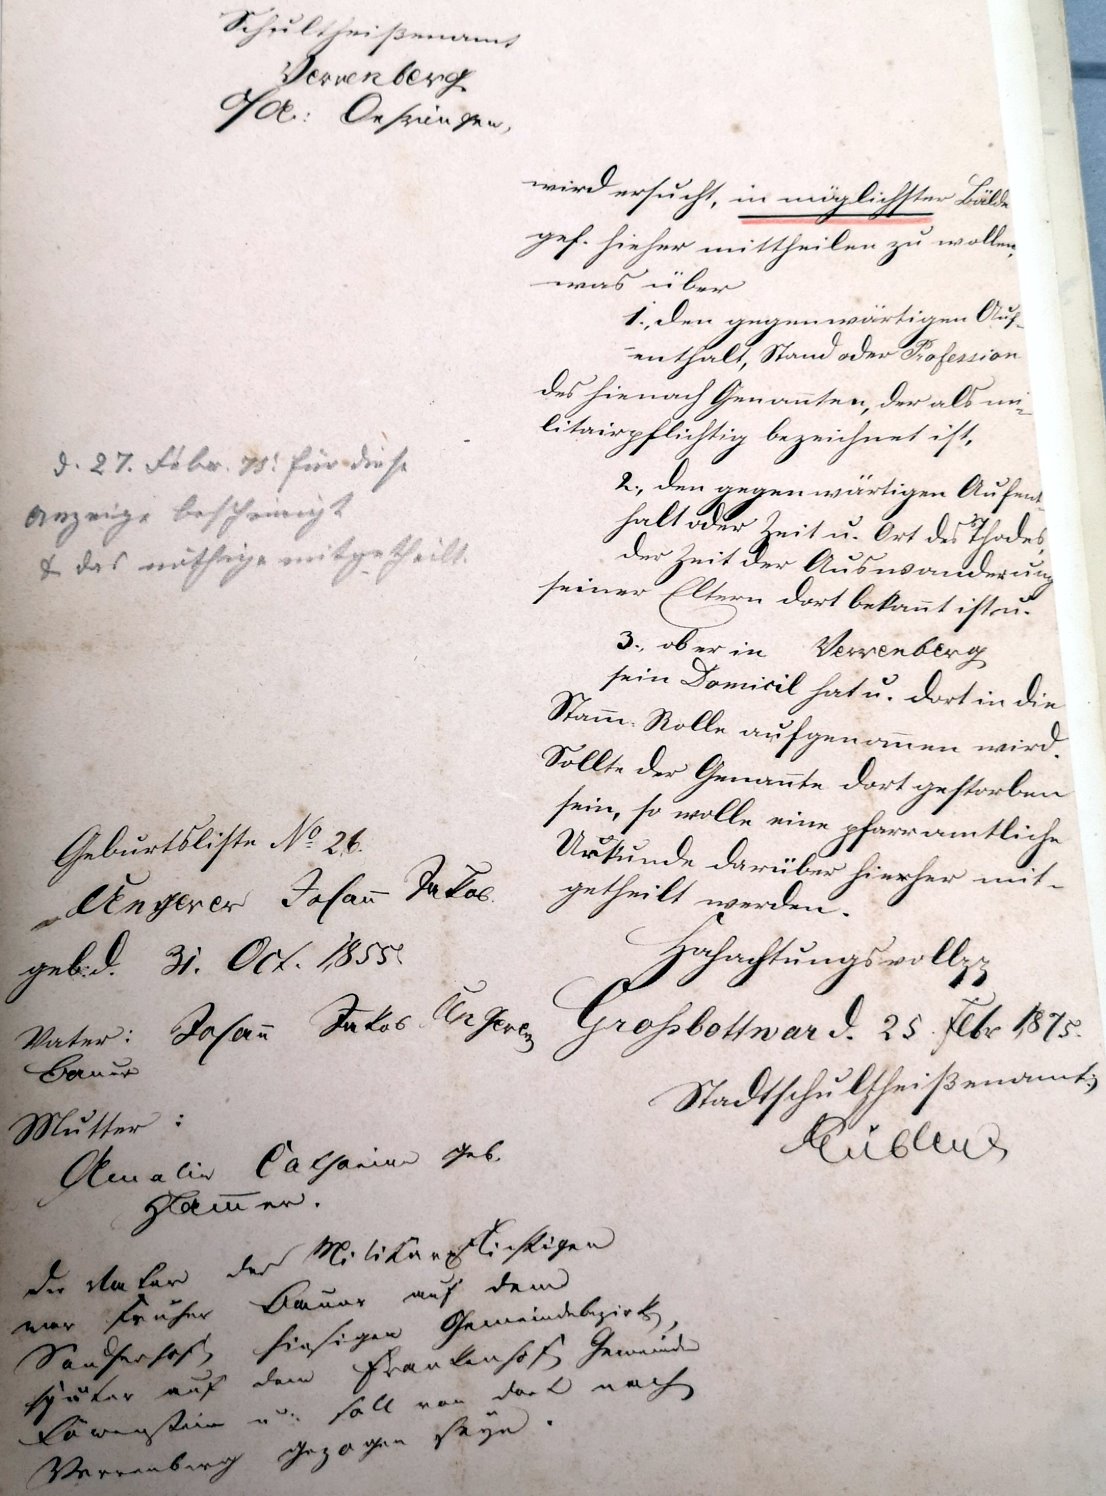 Schultheißenamt
Verrenberg
O/A: Oehringen,
wird ersucht, in möglichster Bälde
gef. hieher mittheilen zu wollen,
was über
1., den gegenwärtigen Auf-
enthalt, Stand oder Profession
des hienach Genannten, der als mi-
litairpflichtig bezeichnet ist,
2., den gegenwärtigen Aufent-
halt oder Zeit u. Ort des Thodes,
der Zeit der Auswanderung
seiner Eltern dort bekannt ist u.
3., ob er in Verrenberg
sein Domicil hat u. dort in die
Stamm-Rolle aufgenommen wird.
Sollte der Genannte dort gestorben
sein, so wolle eine pfarramtliche
Urkunde darüber hierher mit-
getheilt werden.
Hochachtungsvollst
Großbottwar d. 25. Febr 1875.
Stadtschultheißenamt:
d. 27. Febr. 75. für diese
Anzeige bescheinigt
& das nöthige mitgetheilt.
Geburtsliste No 26.
Ungerer Johann Jakob.
geb: d. 31. Oct. 1855.
Vater: Johann Jakob Ungerer
Bauer
Mutter:
Amalie Catharine geb.
Hammer.
Der Vater des Militärpflichtigen
war früher Bauer auf dem
Sauserhof, hiesigen Gemeindebezirk,
später auf dem Frankenhof, Gemeinde
Löwenstein u. soll von dort nach
Verrenberg gezogen seyn.